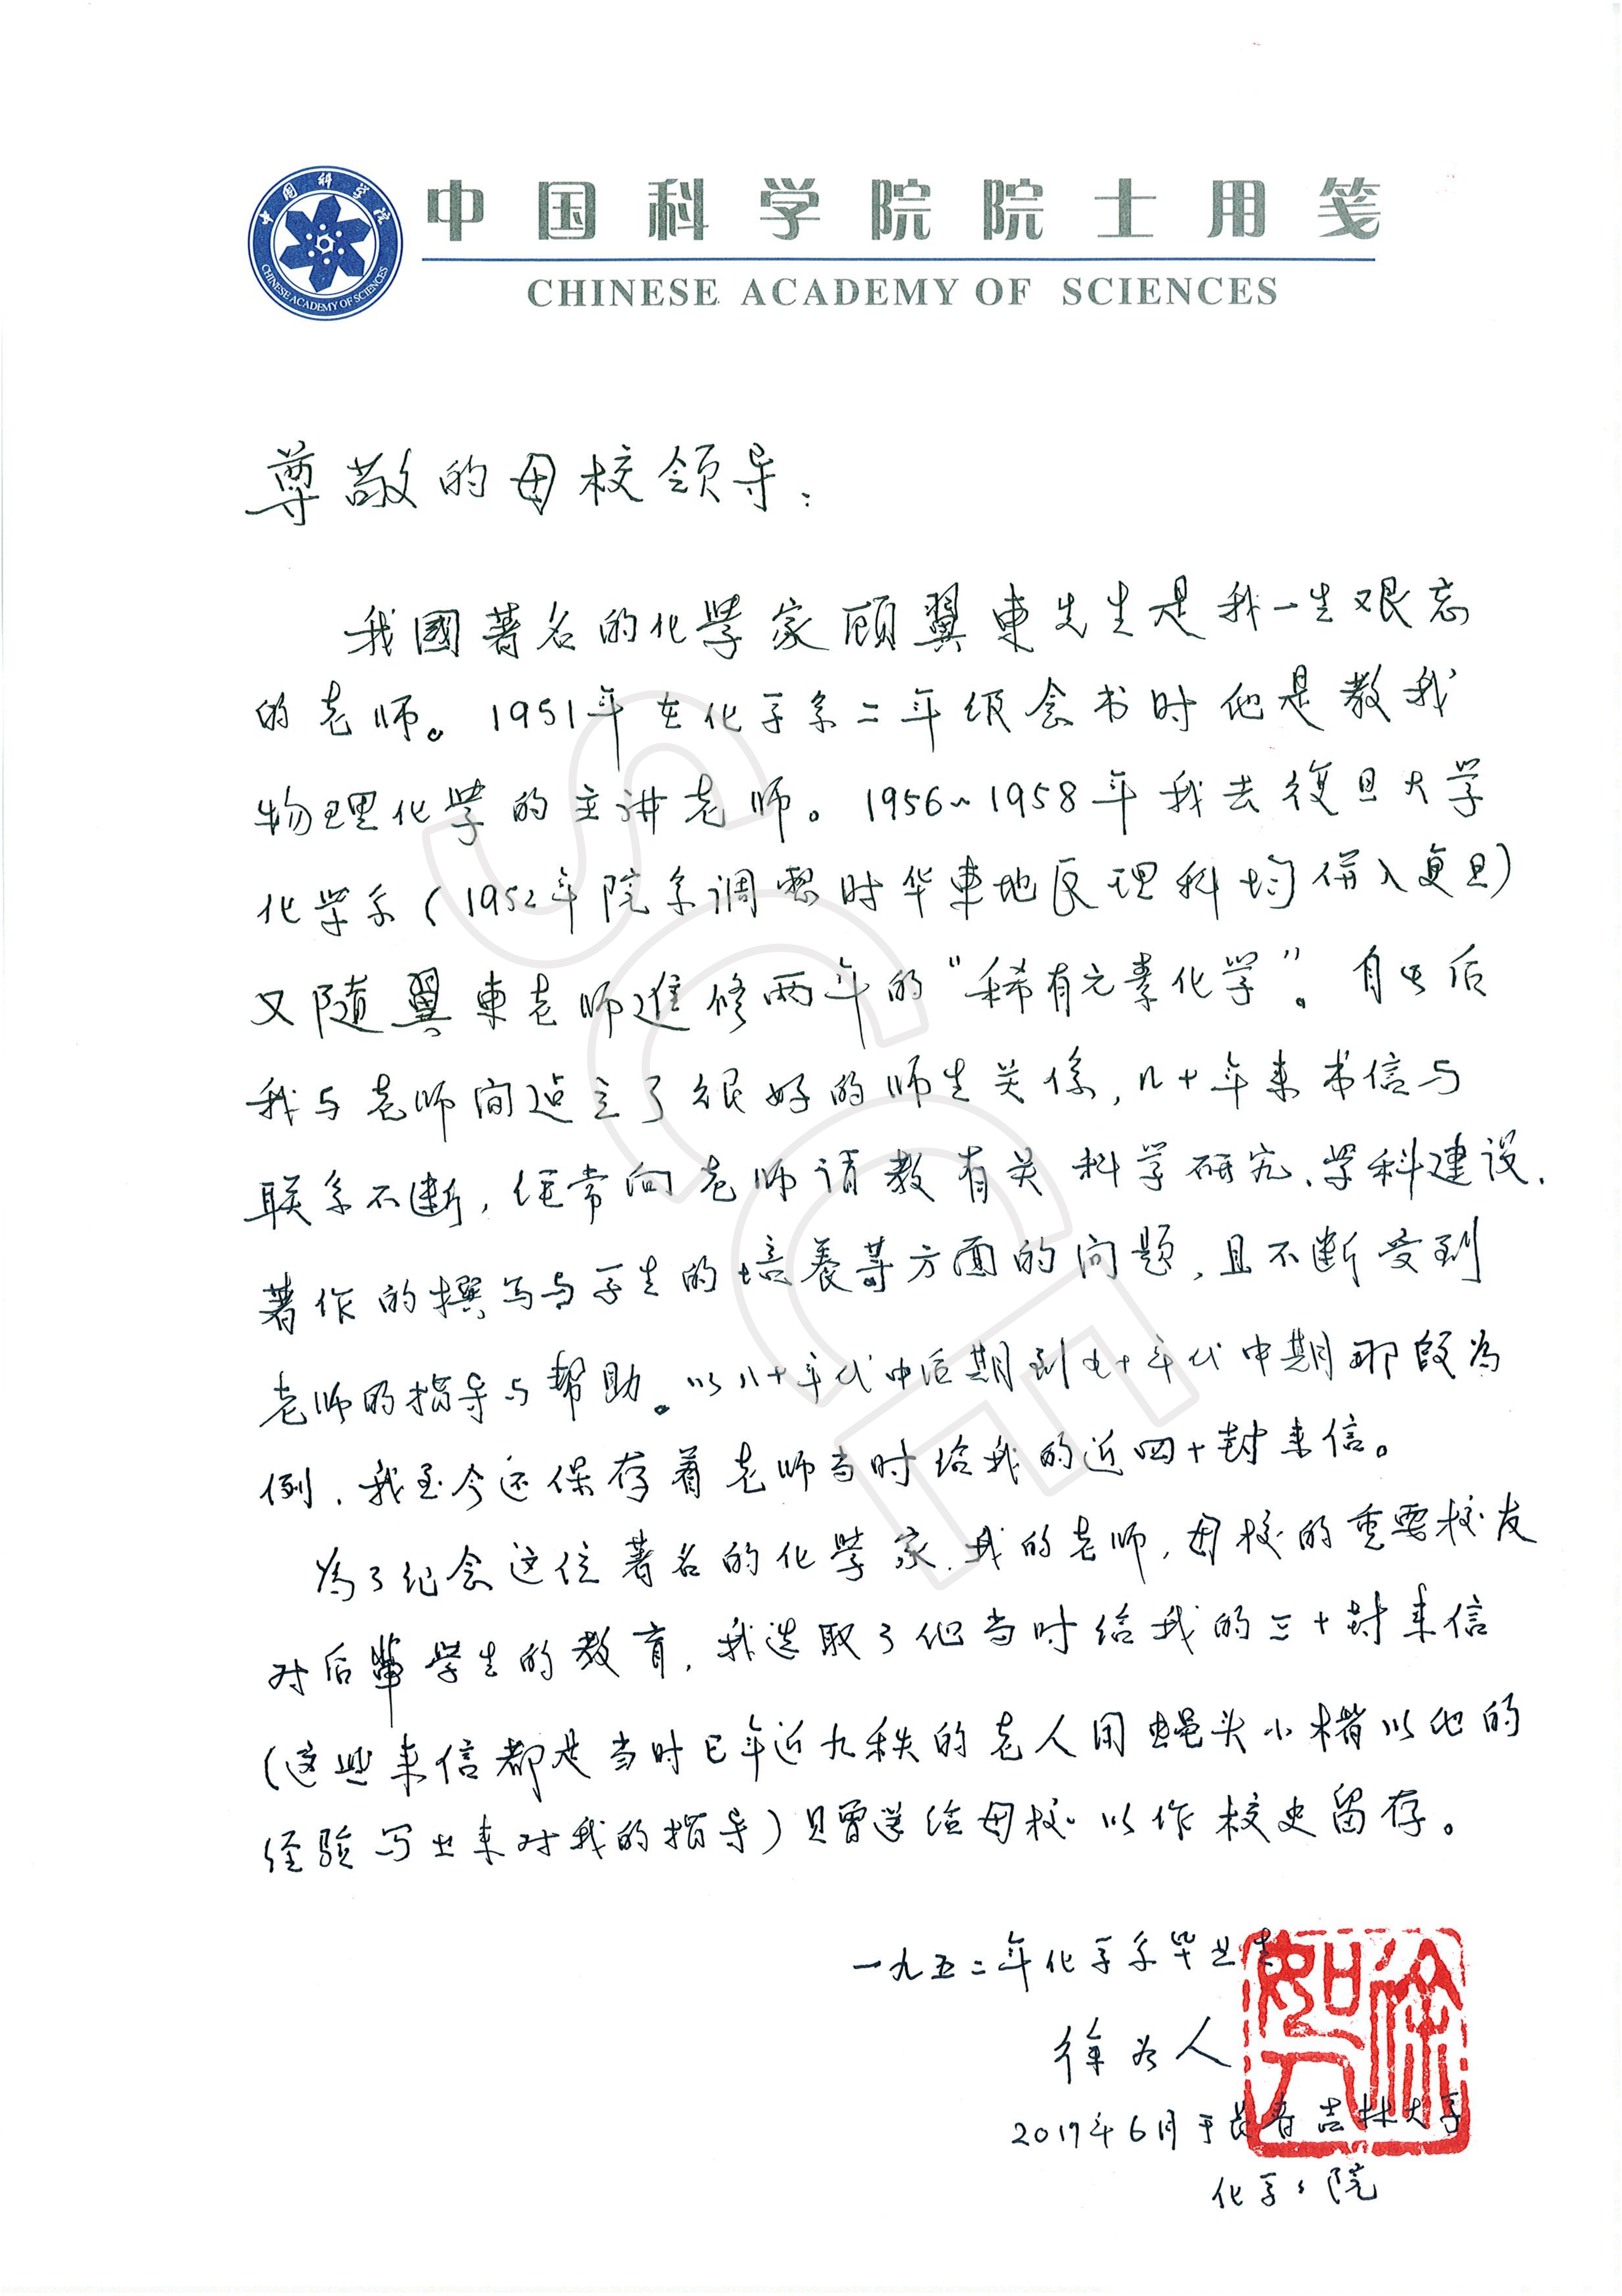 中国科学院院士用笺
CHINESE ACADEMY OF SCIENCES
中国科学院
CHINESE ACADEMY OF SCIENCES
尊敬的母校领导:
我國著名的化學家顾翼東先生是我一生难忘
的老师。1951年在化学系二年级念书时他是教我
物理化學的主讲老师。1956~1958年我去復旦大学
化学系(1952年院系调整时华東地区理科均併入复旦)
又随翼東老师進修两年的"稀有元素化学"。自此后
我与老师间建立了很好的师生关係,几十年来书信与
联系不断,经常向老师请教有关科学研究、学科建设、
著作的撰写与学生的培养等方面的问题,且不断受到
老师的指导与帮助。以八十年代中后期到九十年代中期那段为
例,我至今还保存着老师当时给我的近四十封来信。
为了纪念这位著名的化學家、我的老师,母校的重要校友
对后辈學生的教育,我选取了他当时给我的三十封来信
(这些来信都是当时已年近九秩的老人用蝇头小楷以他的
经验写出来对我的指导)贝曾送给母校以作校史留存。
一九五二年化学系毕业生
徐如人
2017年6月于长春吉林大学
化学学院
徐如人
SCCE